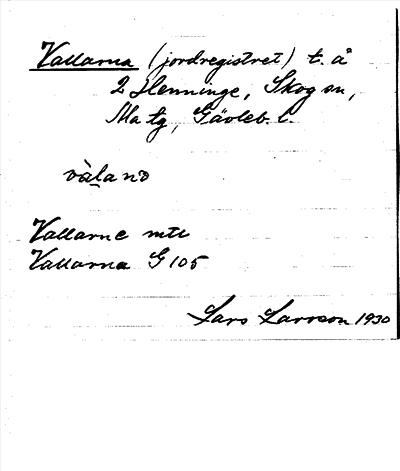 Vallarna (jordregistret) t. å
2 Henninge, Skog sn,
Ma tg, Gävleb. l.
vàḷa nơ
Vallarne mtl
Vallarna G 105
Lars Larsson 1930